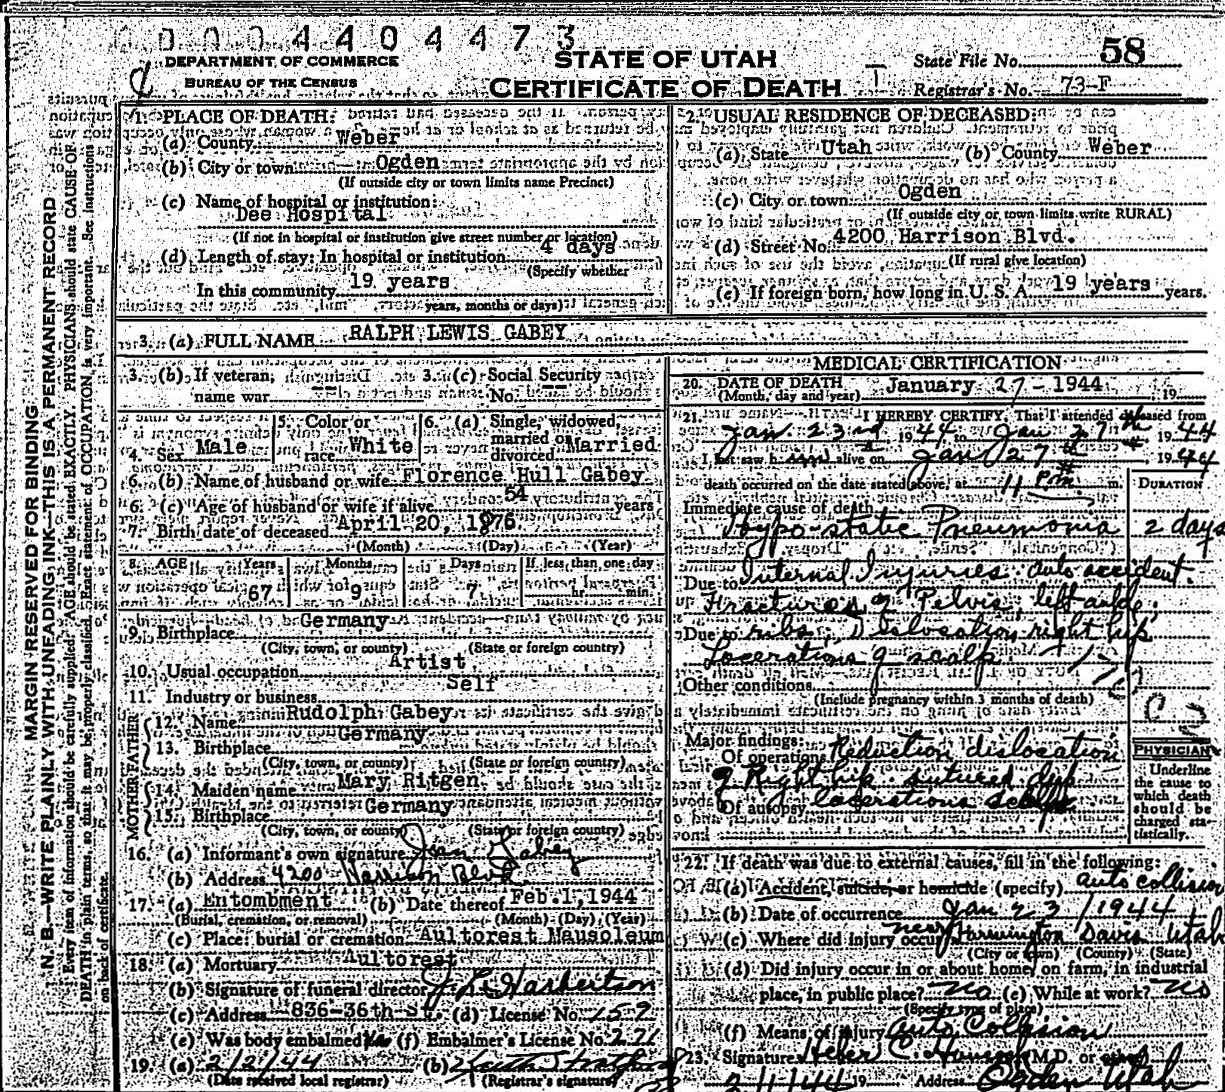 0 0 0 4 4 0 4 4 7 3
DEPARTMENT OF COMMERCE
BUREAU OF THE CENSUS
STATE OF UTAH
CERTIFICATE OF DEATH
State File No. 58
Registrar's No. 73-F
MARGIN RESERVED FOR BINDING
N. B.—WRITE PLAINLY WITH UNFADING INK—THIS IS A PERMANENT RECORD
Every item of information should be carefully supplied. AGE should be stated EXACTLY. PHYSICIANS should state CAUSE OF
DEATH in plain terms, so that it may be properly classified. Exact statement of OCCUPATION is very important. See instructions
on back of certificate.
1. PLACE OF DEATH:
(a) County Weber
(b) City or town Ogden
(If outside city or town limits name Precinct)
(c) Name of hospital or institution:
Dee Hospital
(If not in hospital or institution give street number or location)
(d) Length of stay: In hospital or institution 4 days
(Specify whether
In this community 19 years
years, months or days)
2. USUAL RESIDENCE OF DECEASED:
(a) State Utah (b) County Weber
(c) City or town Ogden
(If outside city or town limits write RURAL)
(d) Street No. 4200 Harrison Blvd.
(If rural give location)
(e) If foreign born, how long in U. S. A. 19 years years.
3. (a) FULL NAME RALPH LEWIS GABEY
3. (b) If veteran, name war 3. (c) Social Security No.
4. Sex Male
5. Color or race White
6. (a) Single, widowed, married or divorced Married
6. (b) Name of husband or wife Florence Hull Gabey
6. (c) Age of husband or wife if alive 54 years
7. Birth date of deceased April 20, 1876
(Month) (Day) (Year)
8. AGE Years Months Days If less than one day
67 9 7 hr. min.
9. Birthplace Germany
(City, town, or county) (State or foreign country)
10. Usual occupation Artist
11. Industry or business Self
FATHER
12. Name Rudolph Gabey
13. Birthplace Germany
(City, town, or county) (State or foreign country)
MOTHER
14. Maiden name Mary Ritgen
15. Birthplace Germany
(City, town, or county) (State or foreign country)
16. (a) Informant's own signature Jean Gabey
(b) Address 4200 Harrison Blvd
17. (a) Entombment (b) Date thereof Feb. 1, 1944
(Burial, cremation, or removal) (Month) (Day) (Year)
(c) Place: burial or cremation Aultorest Mausoleum
18. (a) Mortuary Aultorest
(b) Signature of funeral director J. L. Harbertson
(c) Address 836-36th St. (d) License No. 159
(e) Was body embalmed (f) Embalmer's License No. 271
19. (a) 2/2/44 (b)
(Date received local registrar) (Registrar's signature)
MEDICAL CERTIFICATION
20. DATE OF DEATH January 27 - 1944
(Month, day and year) 19
21. I HEREBY CERTIFY, That I attended deceased from
Jan 23rd 1944 to Jan 27th 1944
I last saw him alive on Jan 27th 1944
death occurred on the date stated above, at 11 Pm m. DURATION
Immediate cause of death
Hypo-static Pneumonia 2 days
Due to Internal Injuries auto accident.
Fractures of Pelvis, left side,
Due to ribs, Dislocation right hip
Lacerations of scalp
Other conditions
(Include pregnancy within 3 months of death)
Major findings:
Of operations Reduction dislocation
of Right hip. sutured deep
Of autopsy lacerations scalp
PHYSICIAN
Underline
the cause to
which death
should be
charged sta-
tistically.
22. If death was due to external causes, fill in the following:
(a) Accident, suicide, or homicide (specify) auto collision
(b) Date of occurrence Jan 23 1944
(c) Where did injury occur near Farmington Davis Utah
(City or town) (County) (State)
(d) Did injury occur in or about home, on farm, in industrial
place, in public place? no (e) While at work? no
(Specify type of place)
(f) Means of injury Auto Collision
23. Signature Heber C Hancock M.D. or other
2/1/44 19 Address Ogden Utah